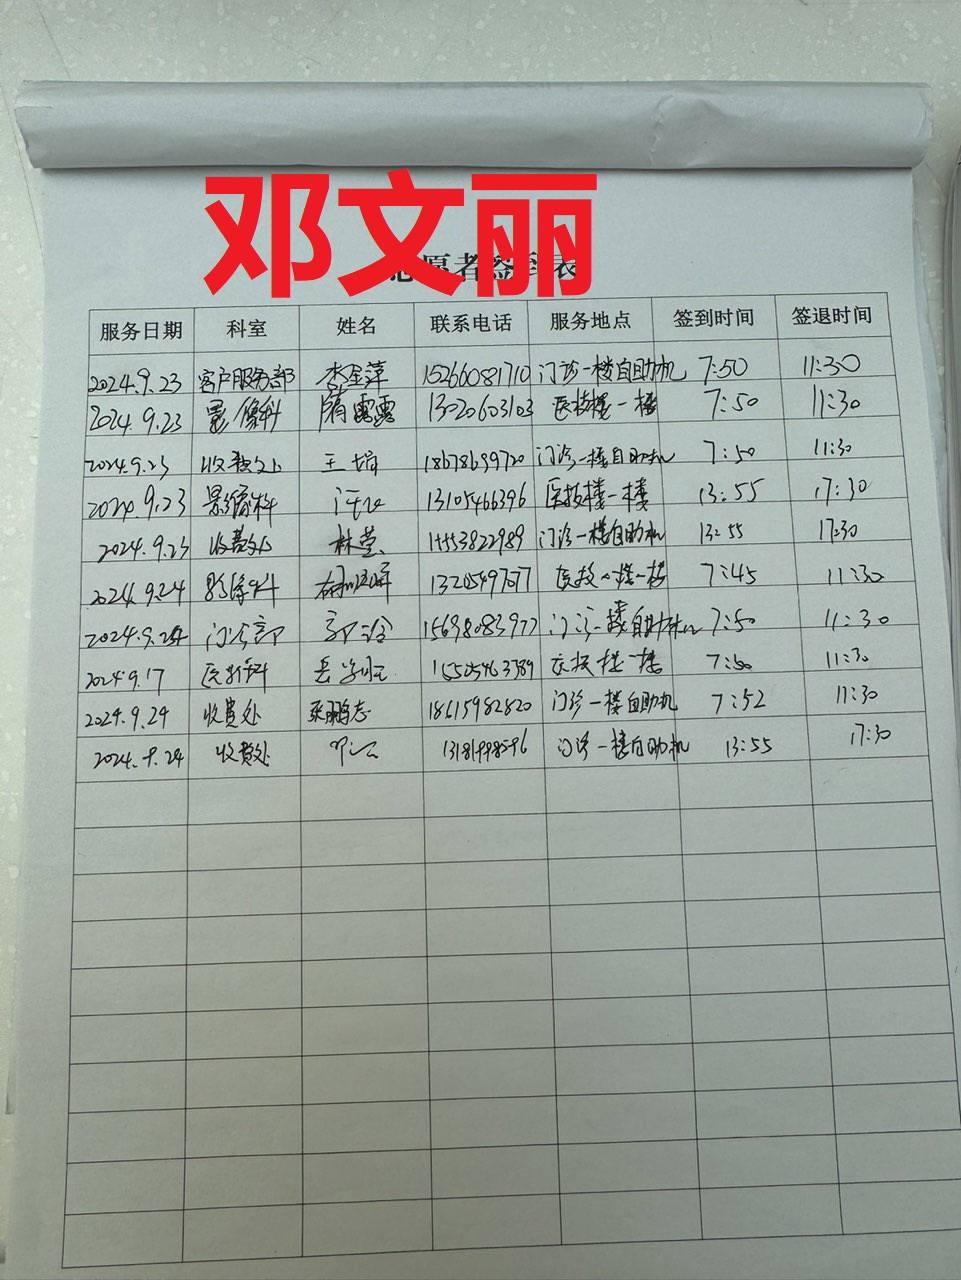 邓文丽
愿者签到表
服务日期 科室 姓名 联系电话 服务地点 签到时间 签退时间
2024.9.23 客户服务部 李金萍 15266081710 门诊一楼自助机 7:50 11:30
2024.9.23 影像科 隋露露 13020603103 医技楼一楼 7:50 11:30
2024.9.23 收费处 王娟 18678699720 门诊一楼自助机 7:50 11:30
2024.9.23 影像科 13105466396 医技楼一楼 13:55 17:30
2024.9.23 收费处 林莹 15553822989 门诊一楼自助机 13:55 17:30
2024.9.24 影像科 13205497077 医技楼一楼 7:45 11:30
2024.9.24 门诊部 郭冷 15698083977 门诊一楼自助机 7:50 11:30
2024.9.17 15505463789 医技楼一楼 11:30
2024.9.24 收费处 张鹏志 18615982820 门诊一楼自助机 7:52 11:30
2024.9.24 收费处 门诊一楼自助机 13:55 17:30